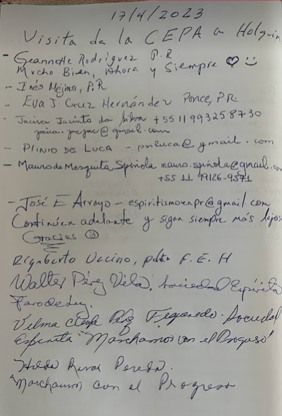 17/4/2023
Visita de la CEPA a Holguín
- Geannette Rodríguez P.R.
Mucho Bien, Ahora y Siempre
- Inés Mejías, P.R
- EVA J. Cruz Hernández Ponce, P.R.
Jacira Jacinto da Silva +55 11 99325 8730
- PLINIO DE LUCA -
- Mauro de Mesquita Spínola mauro.spinola@gmail.com
+55 11 99126-9571
- José E. Arroyo - espiritismoenpr@gmail.com
Continúen adelante y sigan siempre más lejos
Gracias
Rigoberto Vecino, F.E.H
Walter Pérez Vila, Sociedad Espírita
Velma Figueredo. Sociedad
Espírita "Marchamos con el Progreso"
Hilda Rivas Pereda.
"Marchamos con el Progreso